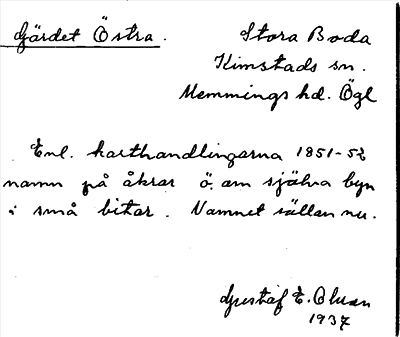 Gärdet Östra.
Stora Boda
Kimstads sn.
Memmings hd. Ögl
Enl. karthandlingarna 1851-52
namn på åkrar ö. om själva byn
i små bitar. Namnet sällan nu.
Gustaf E. Olsson
1937